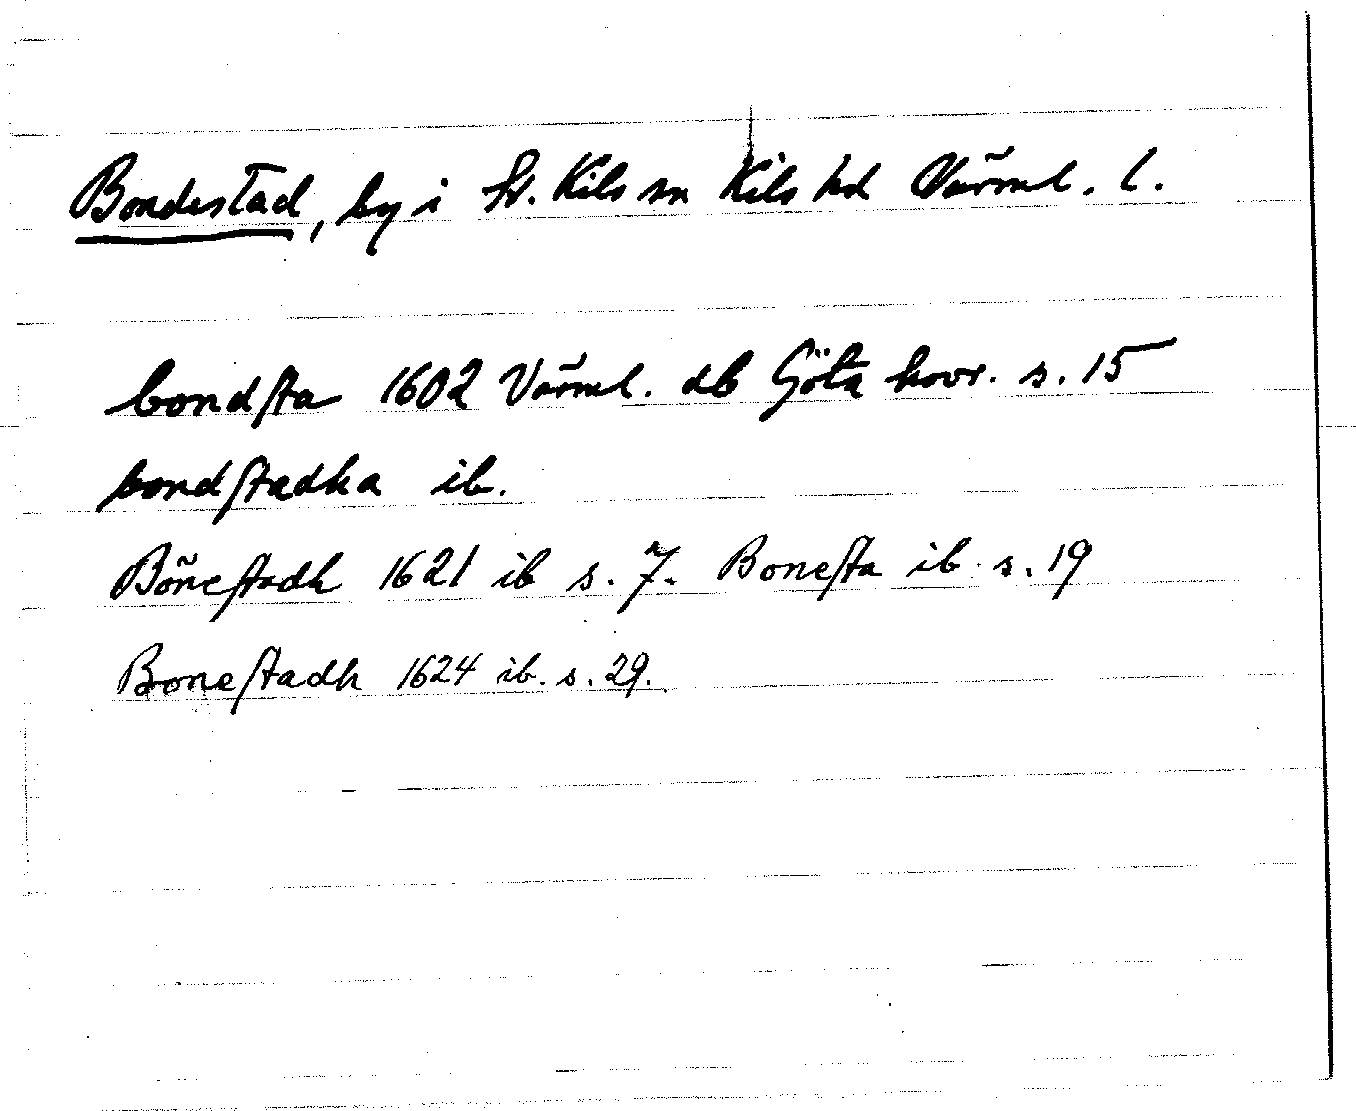 Bondestad, by i St. Kils sn Kils hd Värml. l.
bondsta 1602 Värml. db Göta hovr. s. 15
bondstadha ib.
Bönestadh 1621 ib s. 7. Bonesta ib. s. 19
Bonestadh 1624 ib. s. 29.